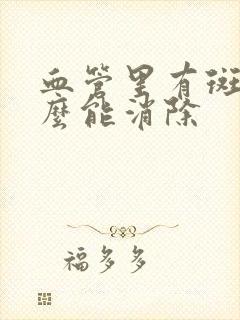 血管里有斑
麽能消除
福多多